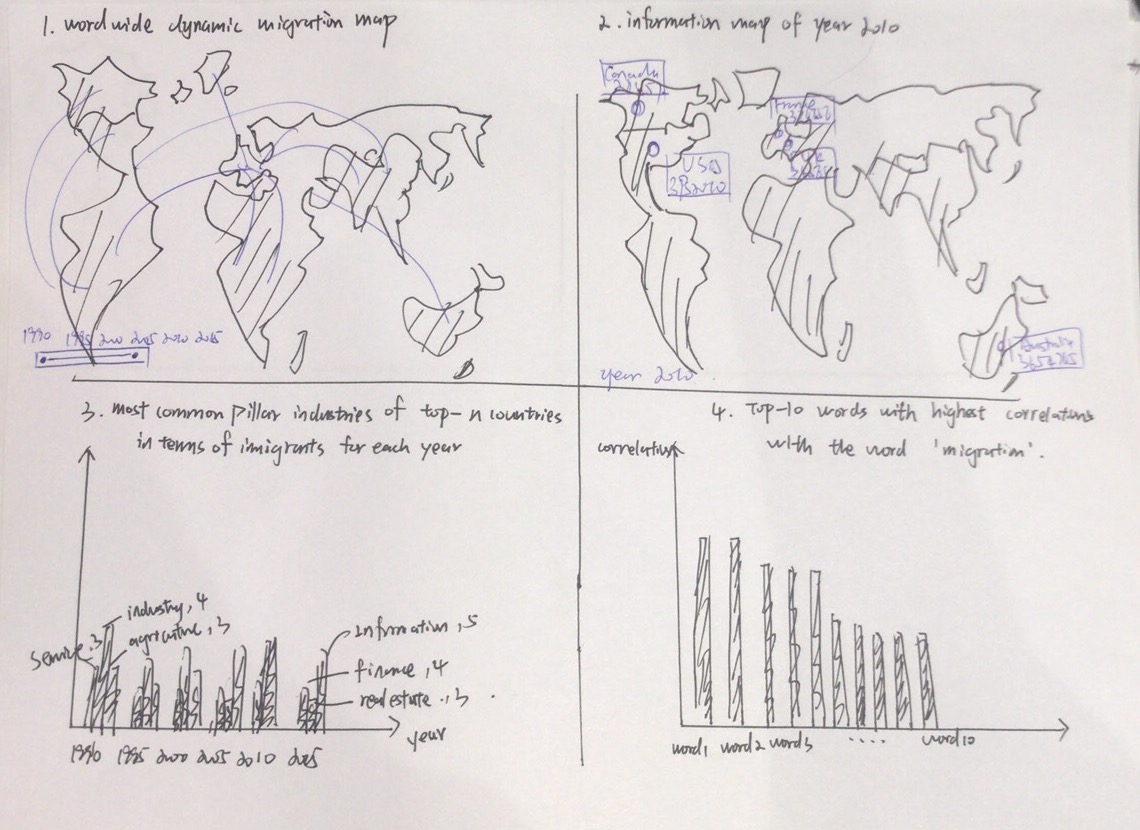 1. wordwide dynamic migration map
1990 1995 200 205 2010 205
2. information map of year 2010
Canada
France
USA
Australia
year 2010.
3. most common pillar industries of top-n countries
in terms of imigrants for each year
industry, 4
service, 3
agriculture, 3
information, 5
finance, 4
real estate, 3
year
1990 1995 2000 205 2010 205
4. Top-10 words with highest correlations
with the word 'migration'.
correlation
word1 word2 word3 .... word10